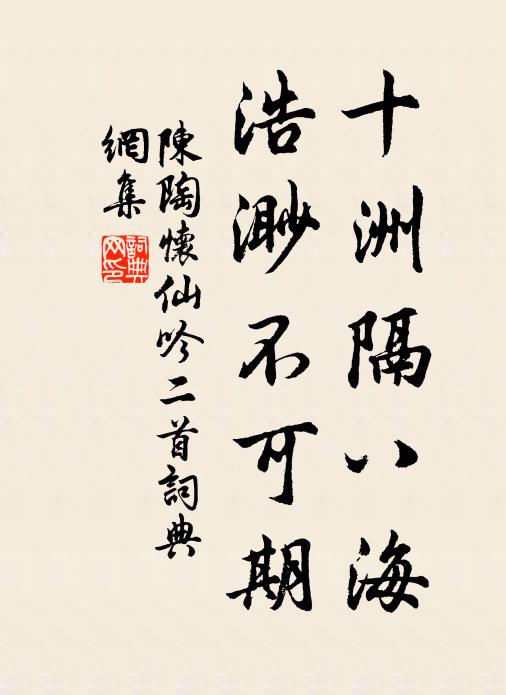 十洲隔八海
浩渺不可期
陳陶懷仙吟二首詞典
網集
詞典
网印